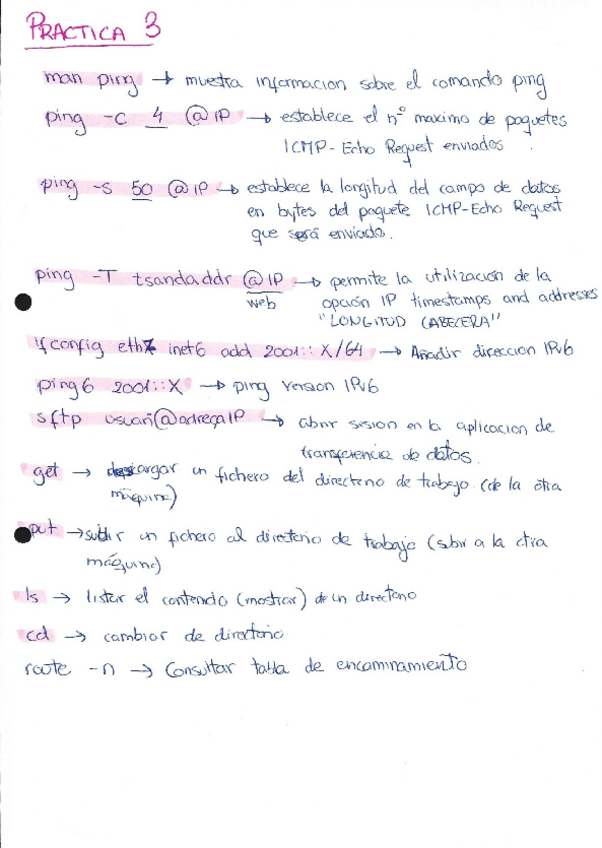 PRACTICA 3
man ping → muestra informacion sobre el comando ping
ping -c 4 @IP → establece el nº maximo de paquetes
ICMP-Echo Request enviados.
ping -s 50 @IP → establece la longitud del campo de datos
en bytes del paquete ICMP-Echo Request
que será enviado.
ping -T tsandaddr @IP → permite la utilización de la
web opción IP timestamps and addresses
"LONGITUD CABECERA"
ifconfig eth inet6 add 2001::X/64 → Añadir direccion IPv6
ping6 2001::X → ping version IPv6
sftp usuari@adreçaIP → abrir sesion en la aplicacion de
transferencia de datos.
get → descargar un fichero del directorio de trabajo (de la otra
máquina)
put → subir un fichero al directorio de trabajo (subir a la otra
máquina)
ls → listar el contenido (mostrar) de un directorio
cd → cambiar de directorio
route -n → Consultar tabla de encaminamiento